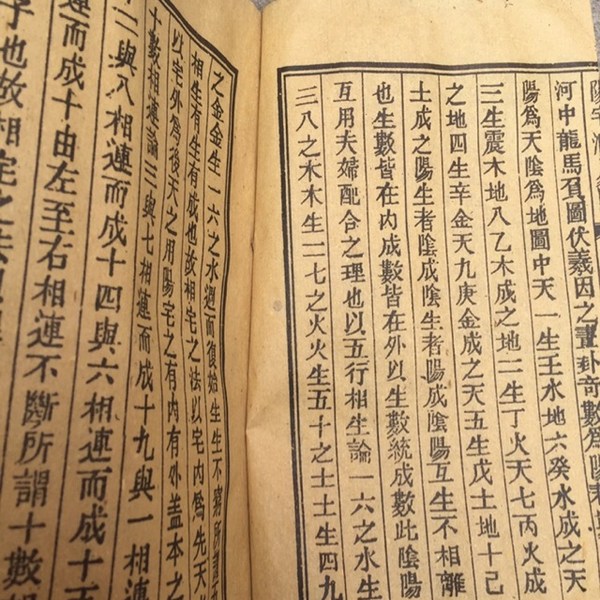 河中龍馬負圖伏羲因之畫卦奇數為陽耦數
陽爲天陰爲地圖中天一生壬水地六癸水成之天
三生震木地八乙木成之地二生丁火天七丙火成
之地四生辛金天九庚金成之天五生戊土地十己
土成之陽生者陰成陰生者陽成陰陽互生不相離
也生數皆在內成數皆在外以生數統成數此陰陽
互用夫婦配合之理也以五行相生論一六之水生
三八之木木生二七之火火生五十之土土生四九
之金金生一六之水週而復始生生不窮所謂
相生有生有成也故相宅之法以宅內爲先天
以宅外爲後天之用陽宅之有內有外蓋本之
十數相連論三與七相連而成十九與一相連
二與八相連而成十四與六相連而成十五
而成十由左至右相連不斷所謂十數
字也故相宅之法